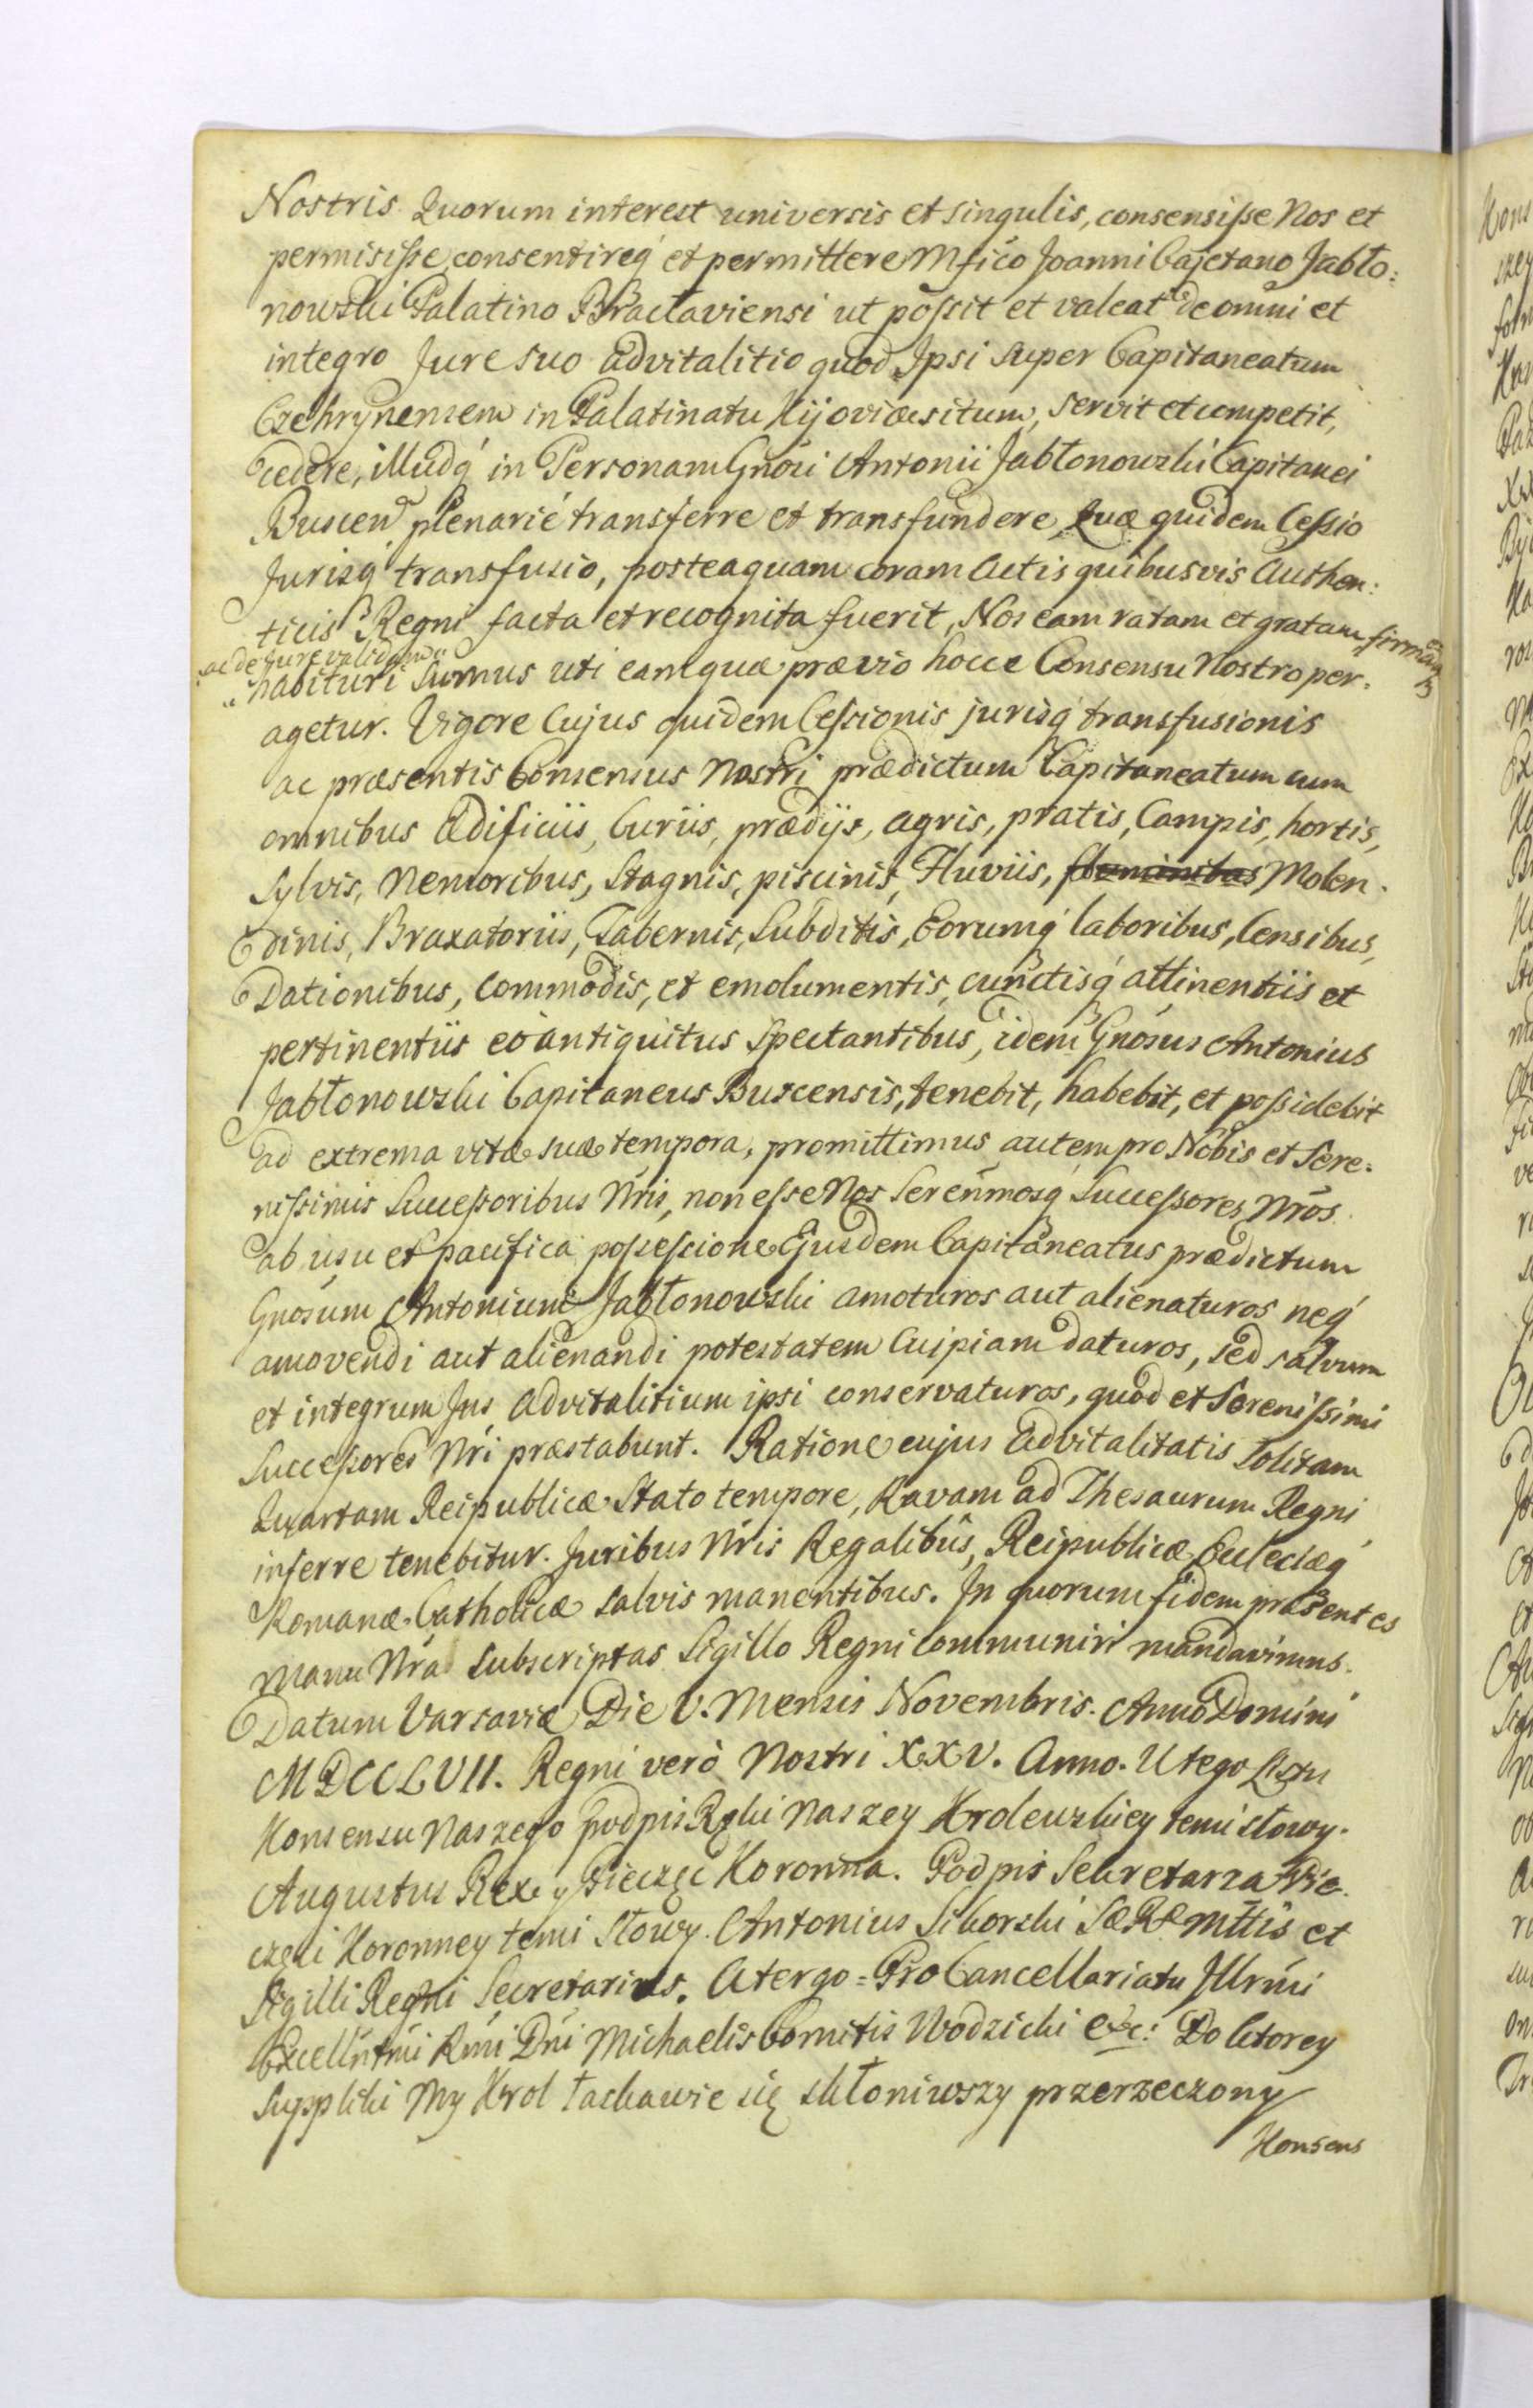 Nostris Quorum interest universis et singulis, consensisse Nos et
permisisse, consentireq́ et permittere Mfico Joanni Cajetano Jabło=
nowski Palatino Braclaviensi ut possit et valeat de omni et
integro Jure suo advitalitio quod Ipsi super Capitaneatum
Czehrynensem in Palatinatu Kijoviæ situm, servit et competit,
cedere, illudq́ in Personam Gnosi Antonii Jabłonowski Capitanei
Buscen plenarié transferre et transfundere, Quæ quidem Cessio
Jurisq́ transfusio, posteaquam coram Actis quibusvis Authen=
ticis Regni facta et recognita fuerit, Nos eam ratam et gratam firmamq
ac de Jure validam
habituri sumus uti eamquæ prævio hocce Consensu Nostro per=
agetur. Vigore Cujus quidem Cessionis jurisq́ transfusionis
ac præsentis Consensus Nostri prædictum Capitaneatum cum
omnibus Ædificiis, Curiis, prædijs, agris, pratis, Campis, hortis,
Sylvis, Nemoribus, Stagnis, piscinis, Fluviis, fluminibus Molen=
dinis, Braxatoriis, Tabernis, Subditis, Eorumq́ laboribus, Censibus,
Dationibus, Commodis, et emolumentis, cunctisq́ attinentiis et
pertinentiis eo antiquitus Spectantibus, idem Gnosus Antonius
Jabłonowski Capitaneus Buscensis, tenebit, habebit, et possidebit
ad extrema vitæ suæ tempora, promittimus autem pro Nobis et Sere=
nissimis Successoribus Nris, non esse Nos Serenmosq́ Successores Nros
ab usu et pacifica possessione Ejusdem Capitaneatus prædictum
Gnosum Antonium Jabłonowski amoturos aut alienaturos neq́
amovendi aut alienandi potestatem Cuipiam daturos, sed salvum
et integrum Jus Advitalitium ipsi conservaturos, quod et Serenissimi
Successores Nri præstabunt. Ratione cujus Advitalitatis Solitam
Quartam Reipublicæ Stato tempore, Ravam ad Thesaurum Regni
inferre tenebitur. Juribus Nris Regalibus, Reipublicæ Ecclesiæq́
Romanæ Catholicæ salvis manentibus. In quorum fidem præsentes
Manu Nra Subscriptas Sigillo Regni Communiri mandavimus.
Datum Varsaviæ Die V. Mensis Novembris. Anno Domini
MDCCLVII. Regni veró Nostri XXV. Anno. U tego Listu
Konsensu Naszego podpis Ręki Naszey Krolewskiey temi słowy.
Augustus Rex y Pieczęc Koronna. Podpis Sekretarza Pie=
częci Koronney temi Słowy. Antonius Sikorski SæRæ Mttis et
Sigilli Regni Secretarius. A tergo = Pro Cancellariatu Illrmi
Excellntmi Rmi Dni Michaelis Comitis Wodzicki &c: Do ktorey
Suppliki My Krol łaskawie się skłoniwszy przerzeczony
Konsens